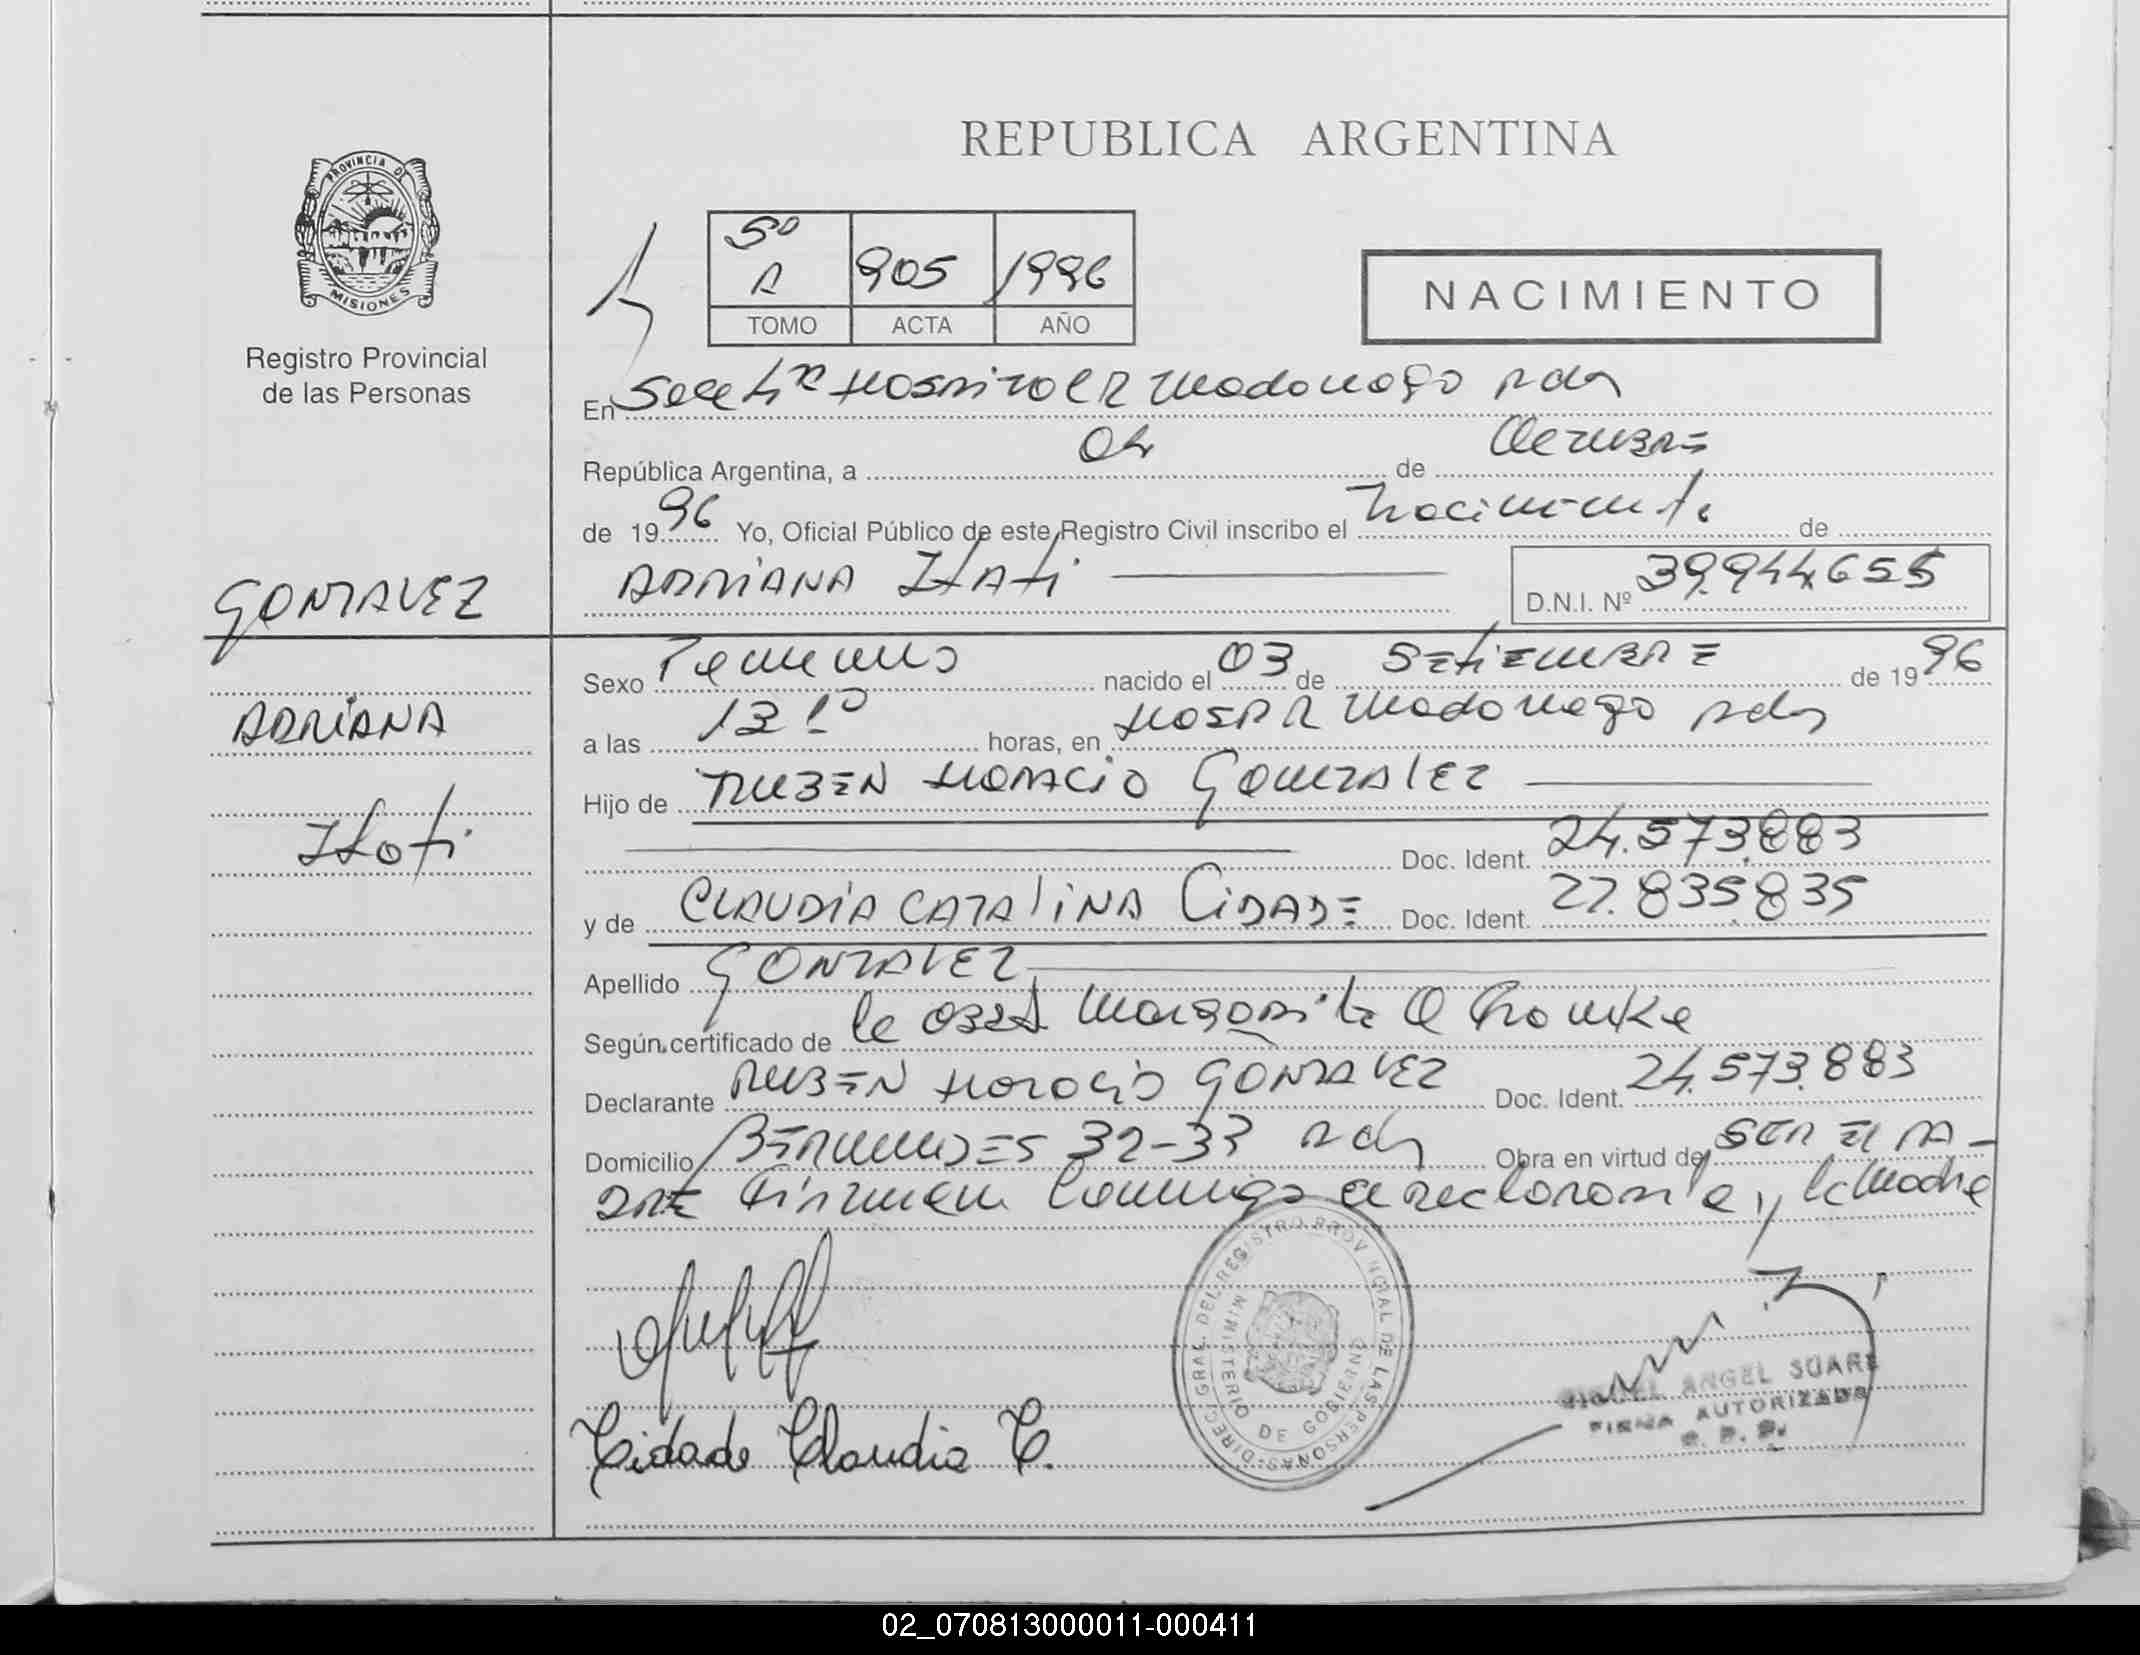 REPUBLICA ARGENTINA
PROVINCIA DE
MISIONES
Registro Provincial
de las Personas
5º
A 905 1996
TOMO ACTA AÑO
NACIMIENTO
En Secc 4ª Hospital R Madariaga Pdas
República Argentina, a 04 de Octubre
de 1996 Yo, Oficial Público de este Registro Civil inscribo el Nacimiento de
ADRIANA Itatí D.N.I. Nº 39.944.655
GONZALEZ
ADRIANA
Itatí
Sexo Femenino nacido el 03 de SEtiEmBRE de 1996
a las 13 10 horas, en Hosp R Madariaga Pdas
Hijo de RUBEN HORACIO GONZALEZ
Doc. Ident. 24.573.883
y de CLAUDIA CATALINA CIDADE Doc. Ident. 27.835.835
Apellido GONZALEZ
Según certificado de la OBST Margarita
Declarante RUBEN HORACIO GONZALEZ Doc. Ident. 24.573.883
Domicilio BERMUDES 32-33 Pdas Obra en virtud de SER El PA-
DRE Firman Conmigo el declarante y la Madre
DIREC. GRAL. DEL REGISTRO PROVINCIAL DE LAS PERSONAS
MINISTERIO DE GOBIERNO
MIGUEL ANGEL SUARE
FIRMA AUTORIZADA
R. P. P.
Cidade Claudia C.
02_070813000011-000411